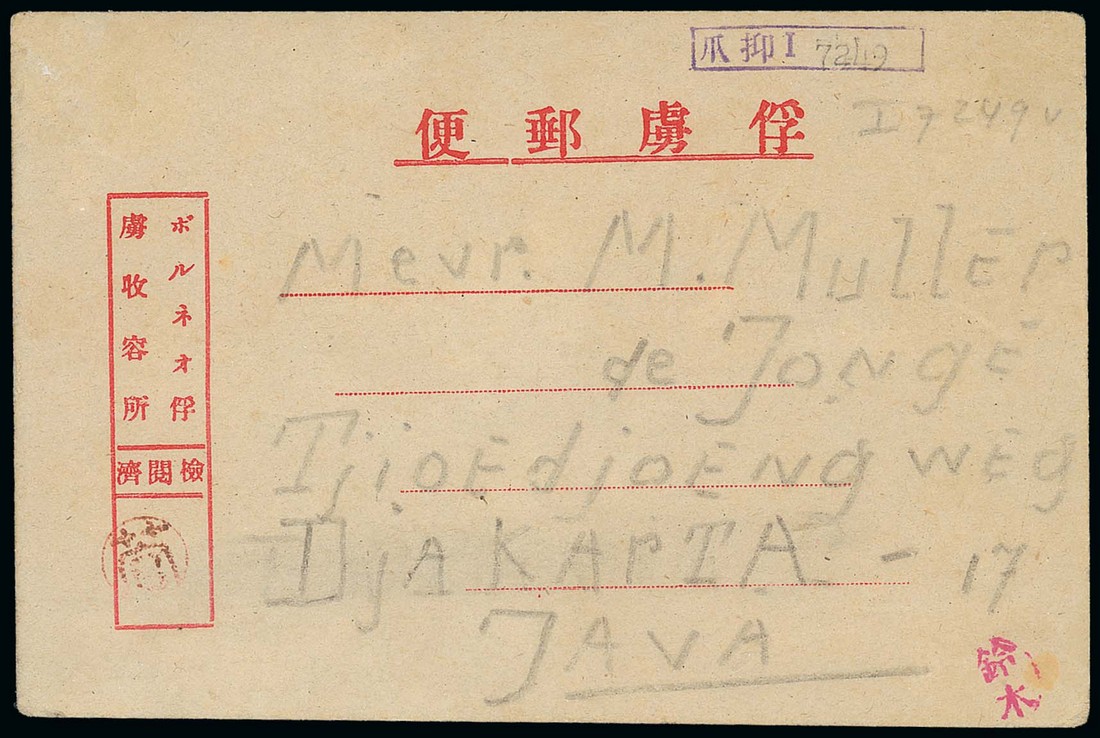 爪抑I 7249
便郵虜俘
I 7249 v
ボルネオ俘
虜收容所
濟閱檢
Mevr. M. Muller
de Jonge
Tjioedjoengweg
Djakarta - 17
Java
鈴木